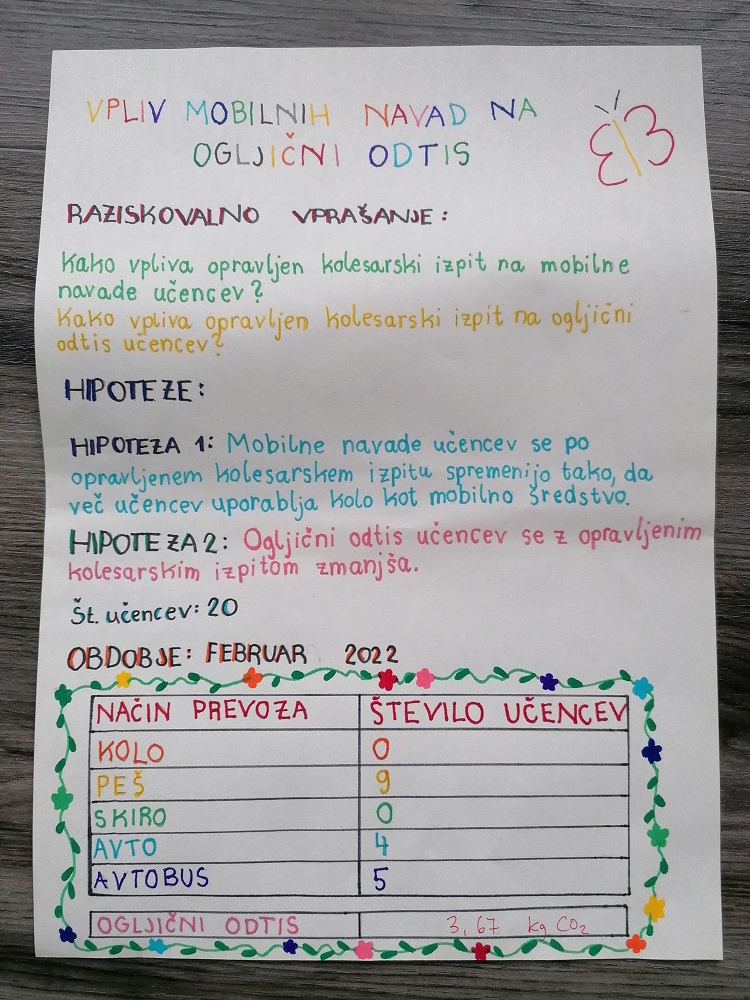 VPLIV MOBILNIH NAVAD NA
OGLJIČNI ODTIS
RAZISKOVALNO VPRAŠANJE:
Kako vpliva opravljen kolesarski izpit na mobilne
navade učencev?
Kako vpliva opravljen kolesarski izpit na ogljični
odtis učencev?
HIPOTEZE:
HIPOTEZA 1: Mobilne navade učencev se po
opravljenem kolesarskem izpitu spremenijo tako, da
več učencev uporablja kolo kot mobilno sredstvo.
HIPOTEZA 2: Ogljični odtis učencev se z opravljenim
kolesarskim izpitom zmanjša.
Št. učencev: 20
OBDOBJE: FEBRUAR 2022
NAČIN PREVOZA ŠTEVILO UČENCEV
KOLO 0
PEŠ 9
SKIRO 0
AVTO 4
AVTOBUS 5
OGLJIČNI ODTIS 3,67 kg CO₂